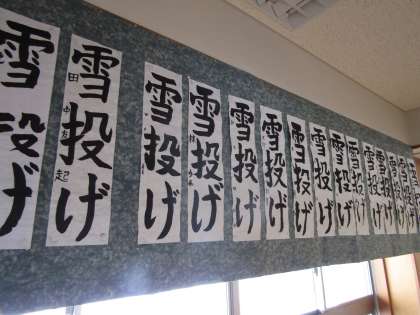 雪投げ
雪投げ
雪投げ
雪投げ
雪投げ
雪投げ
雪投げ
雪投げ
雪投げ
雪投げ
雪投げ
雪投げ
雪投げ